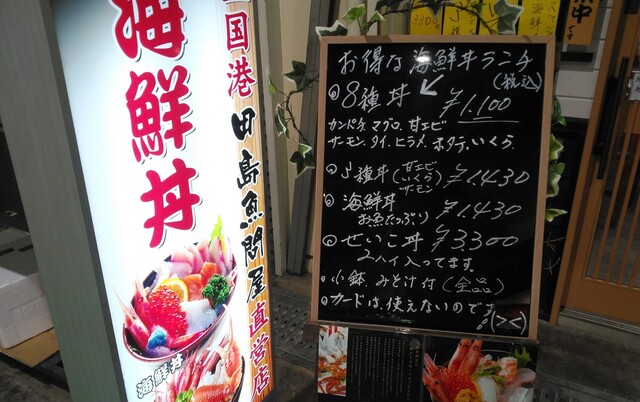 海鮮丼
国港 田島魚問屋 直営店
海鮮丼
お得な海鮮丼ランチ
(税込)
8種丼 ¥1.100
カンパチ.マグロ.甘エビ
サーモン.タイ.ヒラメ.ホタテ.いくら.
種丼(甘エビ
いくら
サーモン) ¥1.430
海鮮丼
お魚たっぷり ¥1.430
せいこ丼 ¥3300
2ハイ入ってます。
小鉢.みそ汁付(全品)
カードは、使えないのです!!
(××)